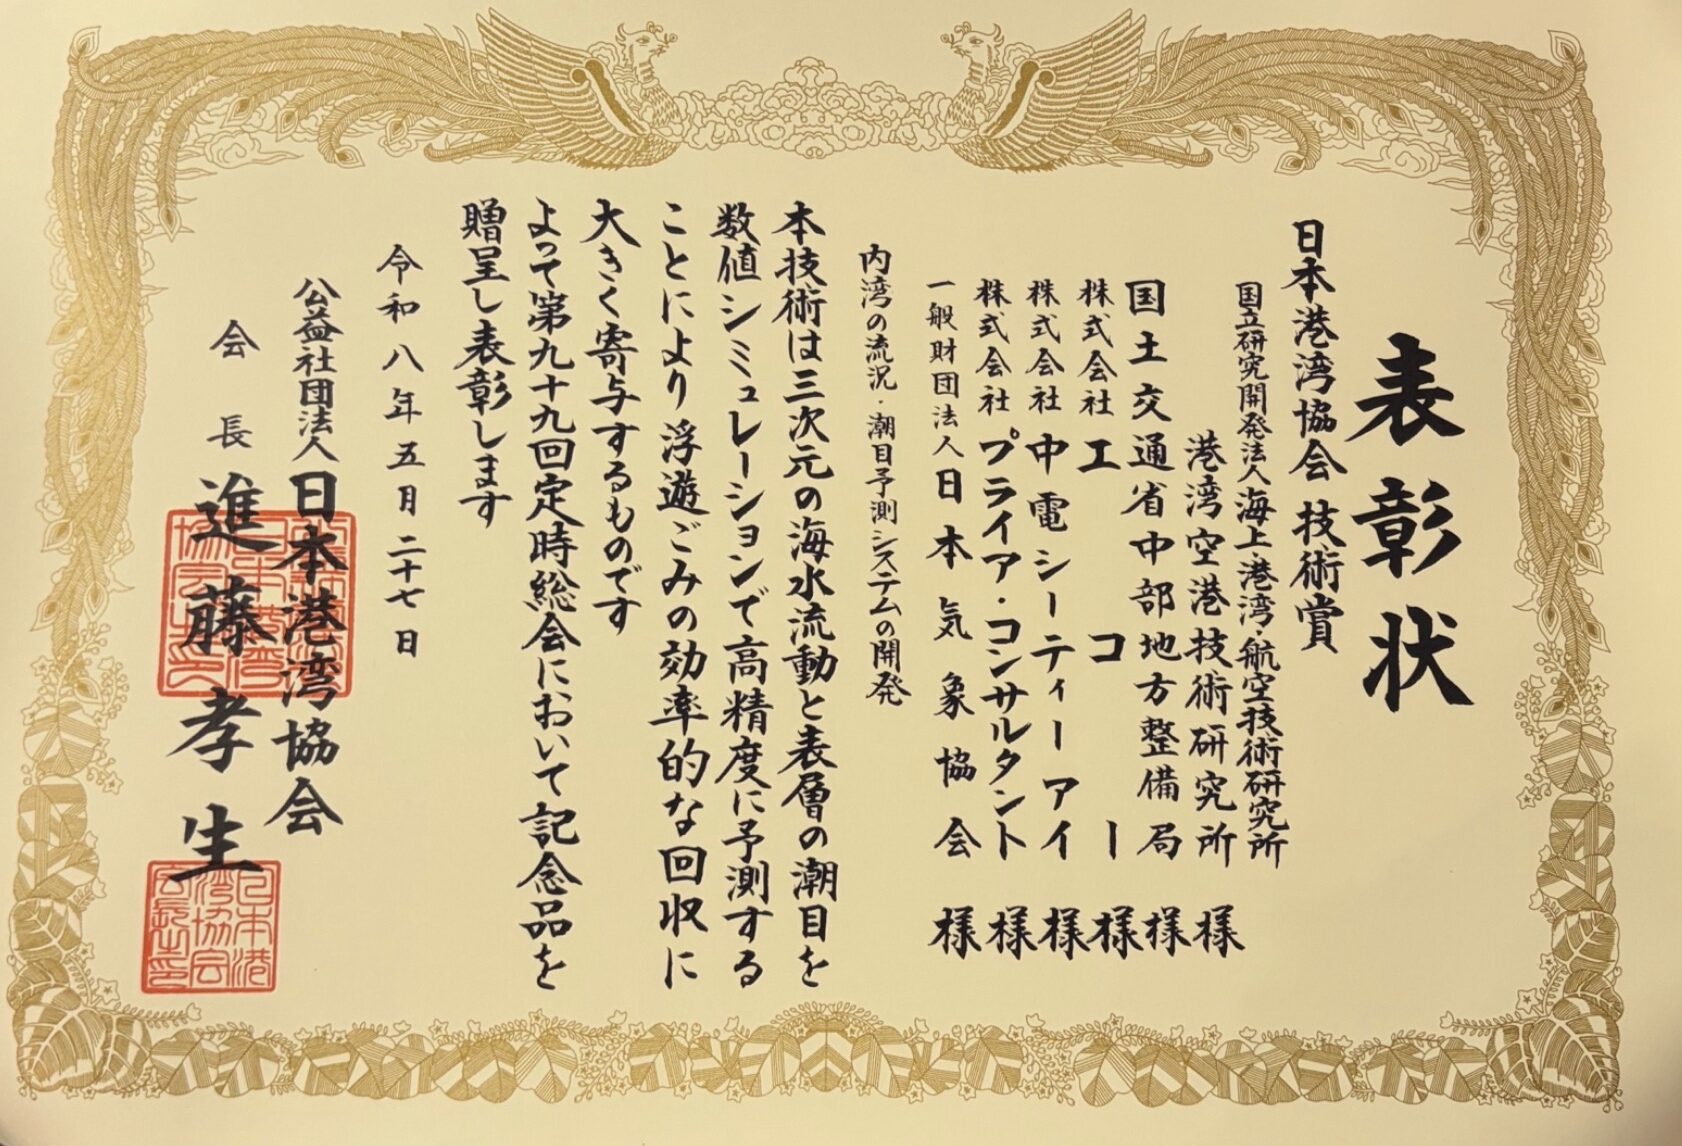 表彰状
日本港湾協会 技術賞
国立研究開発法人海上・港湾・航空技術研究所
港湾空港技術研究所 様
国土交通省中部地方整備局 様
株式会社エコー 様
株式会社中電シーティーアイ 様
株式会社プライア・コンサルタント 様
一般財団法人日本気象協会 様
内湾の流況・潮目予測システムの開発
本技術は三次元の海水流動と表層の潮目を
数値シミュレーションで高精度に予測する
ことにより浮遊ごみの効率的な回収に
大きく寄与するものです
よって第九十九回定時総会において記念品を
贈呈し表彰します
令和八年五月二十七日
公益社団法人日本港湾協会
会長 進藤孝生